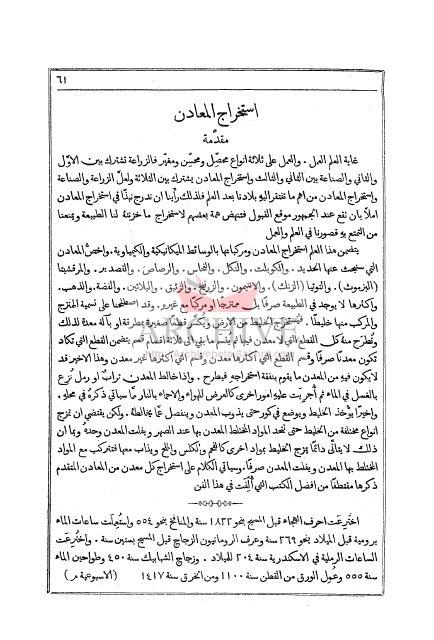 ٦١
استخراج المعادن
مقدّمة
غاية العلم العمل . والعمل على ثلاثة انواع محصّل ومحسّن ومغيّر فالزراعة تشترك بين الاوّل
والثاني والصناعة بين الثاني والثالث واستخراج المعادن يشترك بين الثلاثة ولعلّ الزراعة والصناعة
واستخراج المعادن من اهم ما تفتقر اليهِ بلادنا بعد العلم فلذلك رأينا ان ندرج نبذًا في استخراج المعادن
املاً بان تقع عند الجمهور موقع القبول فتنهض همة بعضهم لاستخراج ما خزنته لنا الطبيعة ويمنعنا
من التمتع بهِ قصورنا في العلم والعمل
يتضمن هذا العلم استخراج المعادن ومركباتها بالوسائط الميكانيكية والكيماوية. واخصّ المعادن
التي سيبحث عنها الحديد . والكوبلت. والنكل . والنحاس . والرصاص . والقصدير. والمرقشيثا
(البزموث). والتوتيا (الزنك) . والانتيمون . والزرنيخ . والزئبق . والبلاتين . والفضة. والذهب.
واكثرها لا يوجد في الطبيعة صرفًا بل ممتزجًا او مركبًا مع غيرهِ . وقد اصطلحنا على تسمية الممتزج
والمركب منها خليطًا . فيُستخرج الخليط من الارض ويُكسَّر قطعًا صغيرة بمطرقة او بآلة معدة لذلك
وتُطرَح منه كل القطع التي لا معدن فيها ثم يقسم ما بقي الى ثلاثة اقسام قسم يتضمن القطع التي تكاد
تكون معدنًا صرفًا وقسم القطع التي اكثرها معدن وقسم التي اكثرها غير معدن وهذا الاخير قد
لا يكون فيهِ من المعدن ما يقوم بنفقة استخراجهِ فيطرح . واذا خالط المعدن تراب او رمل نُزع
بالغسل في الماء ثم أُجريت عليهِ امور اخرى كالعرض للهواء والاحماء بالنار مما سياتي ذكرهُ في محلهِ .
واخيرًا يؤخذ الخليط ويوضع في كور حتى يذوب المعدن وينفصل عما يخالطهُ . ولكن يقتضي ان تمزج
انواع مختلفة من الخليط حتى تتحد المواد المختلط المعدن بها عند الصهر ويفلت المعدن وحدهُ وبما ان
ذلك لا يتأتى دائمًا يمزج الخليط بمواد اخرى كالفحم والكلس والملح ويذاب معها فتتركب مع المواد
المختلط بها المعدن ويفلت المعدن صرفًا. وسياتي الكلام على استخراج كل معدن من المعادن المتقدم
ذكرها مقتطفًا من افضل الكتب التي أُلِّفت في هذا الفن
اختُرِعَت احرف الهجاء قبل المسيح بنحو ١٨٢٢ سنة والمنافخ بنحو ٥٥٤ واستُعملت ساعات الماء
برومية قبل الميلاد بنحو ٢٦٩ سنة وعرف الرومانيون الزجاج قبل المسيح بستين سنة . واختُرِعت
الساعات الرملية في الاسكندرية سنة ٢٠٤ للميلاد . وزجاج الشبابيك سنة ٤٥٠ وطواحين الماء
سنة ٥٥٥ وعُمل الورق من القطن سنة ١١٠٠ ومن الخرق سنة ١٤١٧ (الاسبوعية م)
ARCHIVE